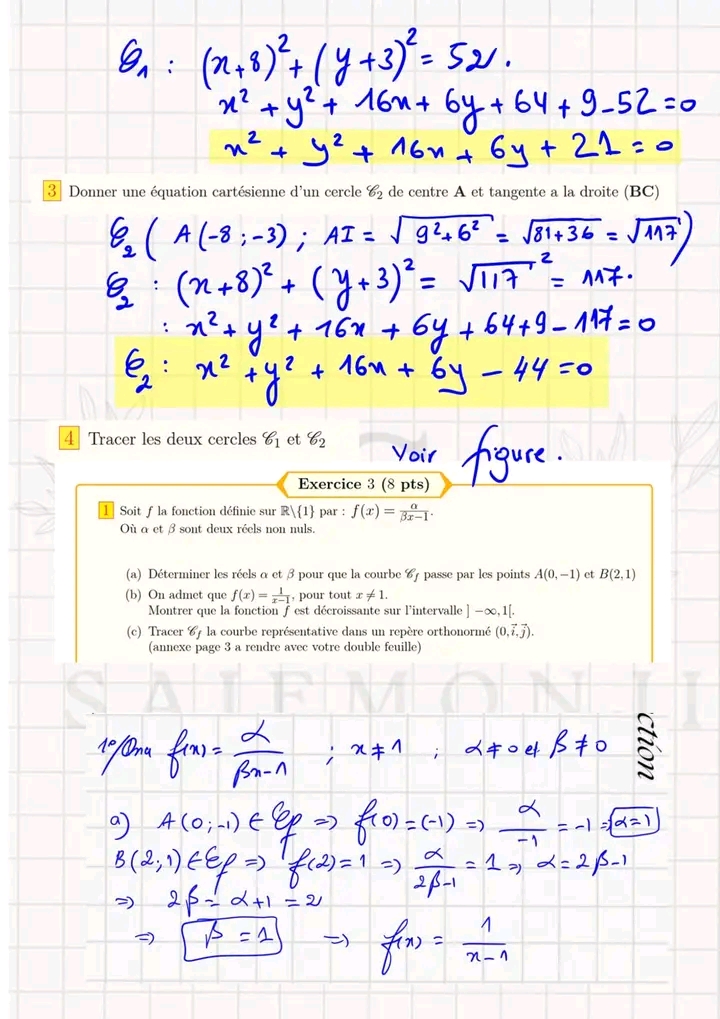 𝒞₁ : (x+8)² + (y+3)² = 52.
x² + y² + 16x + 6y + 64 + 9 - 52 = 0
x² + y² + 16x + 6y + 21 = 0
3 Donner une équation cartésienne d'un cercle 𝒞₂ de centre A et tangente a la droite (BC)
𝒞₂ ( A(-8 ; -3) ; AI = √(9²+6²) = √(81+36) = √117 )
𝒞₂ : (x+8)² + (y+3)² = √117² = 117.
: x² + y² + 16x + 6y + 64+9 - 117 = 0
𝒞₂ : x² + y² + 16x + 6y - 44 = 0
4 Tracer les deux cercles 𝒞₁ et 𝒞₂ Voir figure.
Exercice 3 (8 pts)
1 Soit f la fonction définie sur ℝ\{1} par : f(x) = α/(βx-1).
Où α et β sont deux réels non nuls.
(a) Déterminer les réels α et β pour que la courbe 𝒞f passe par les points A(0,-1) et B(2,1)
(b) On admet que f(x) = 1/(x-1), pour tout x ≠ 1.
Montrer que la fonction f est décroissante sur l'intervalle ] -∞, 1[.
(c) Tracer 𝒞f la courbe représentative dans un repère orthonormé (0, i⃗, j⃗).
(annexe page 3 a rendre avec votre double feuille)
SAIFMONJI
ction
1°/ Ona f(x) = α/(βx-1) ; x ≠ 1 ; α ≠ 0 et β ≠ 0
a) A(0;-1) ∈ 𝒞f => f(0) = (-1) => α/-1 = -1 => α=1
B(2;1) ∈ 𝒞f => f(2) = 1 => α/(2β-1) = 1 => α = 2β-1
=> 2β = α+1 = 2
=> β = 1 => f(x) = 1/(x-1)